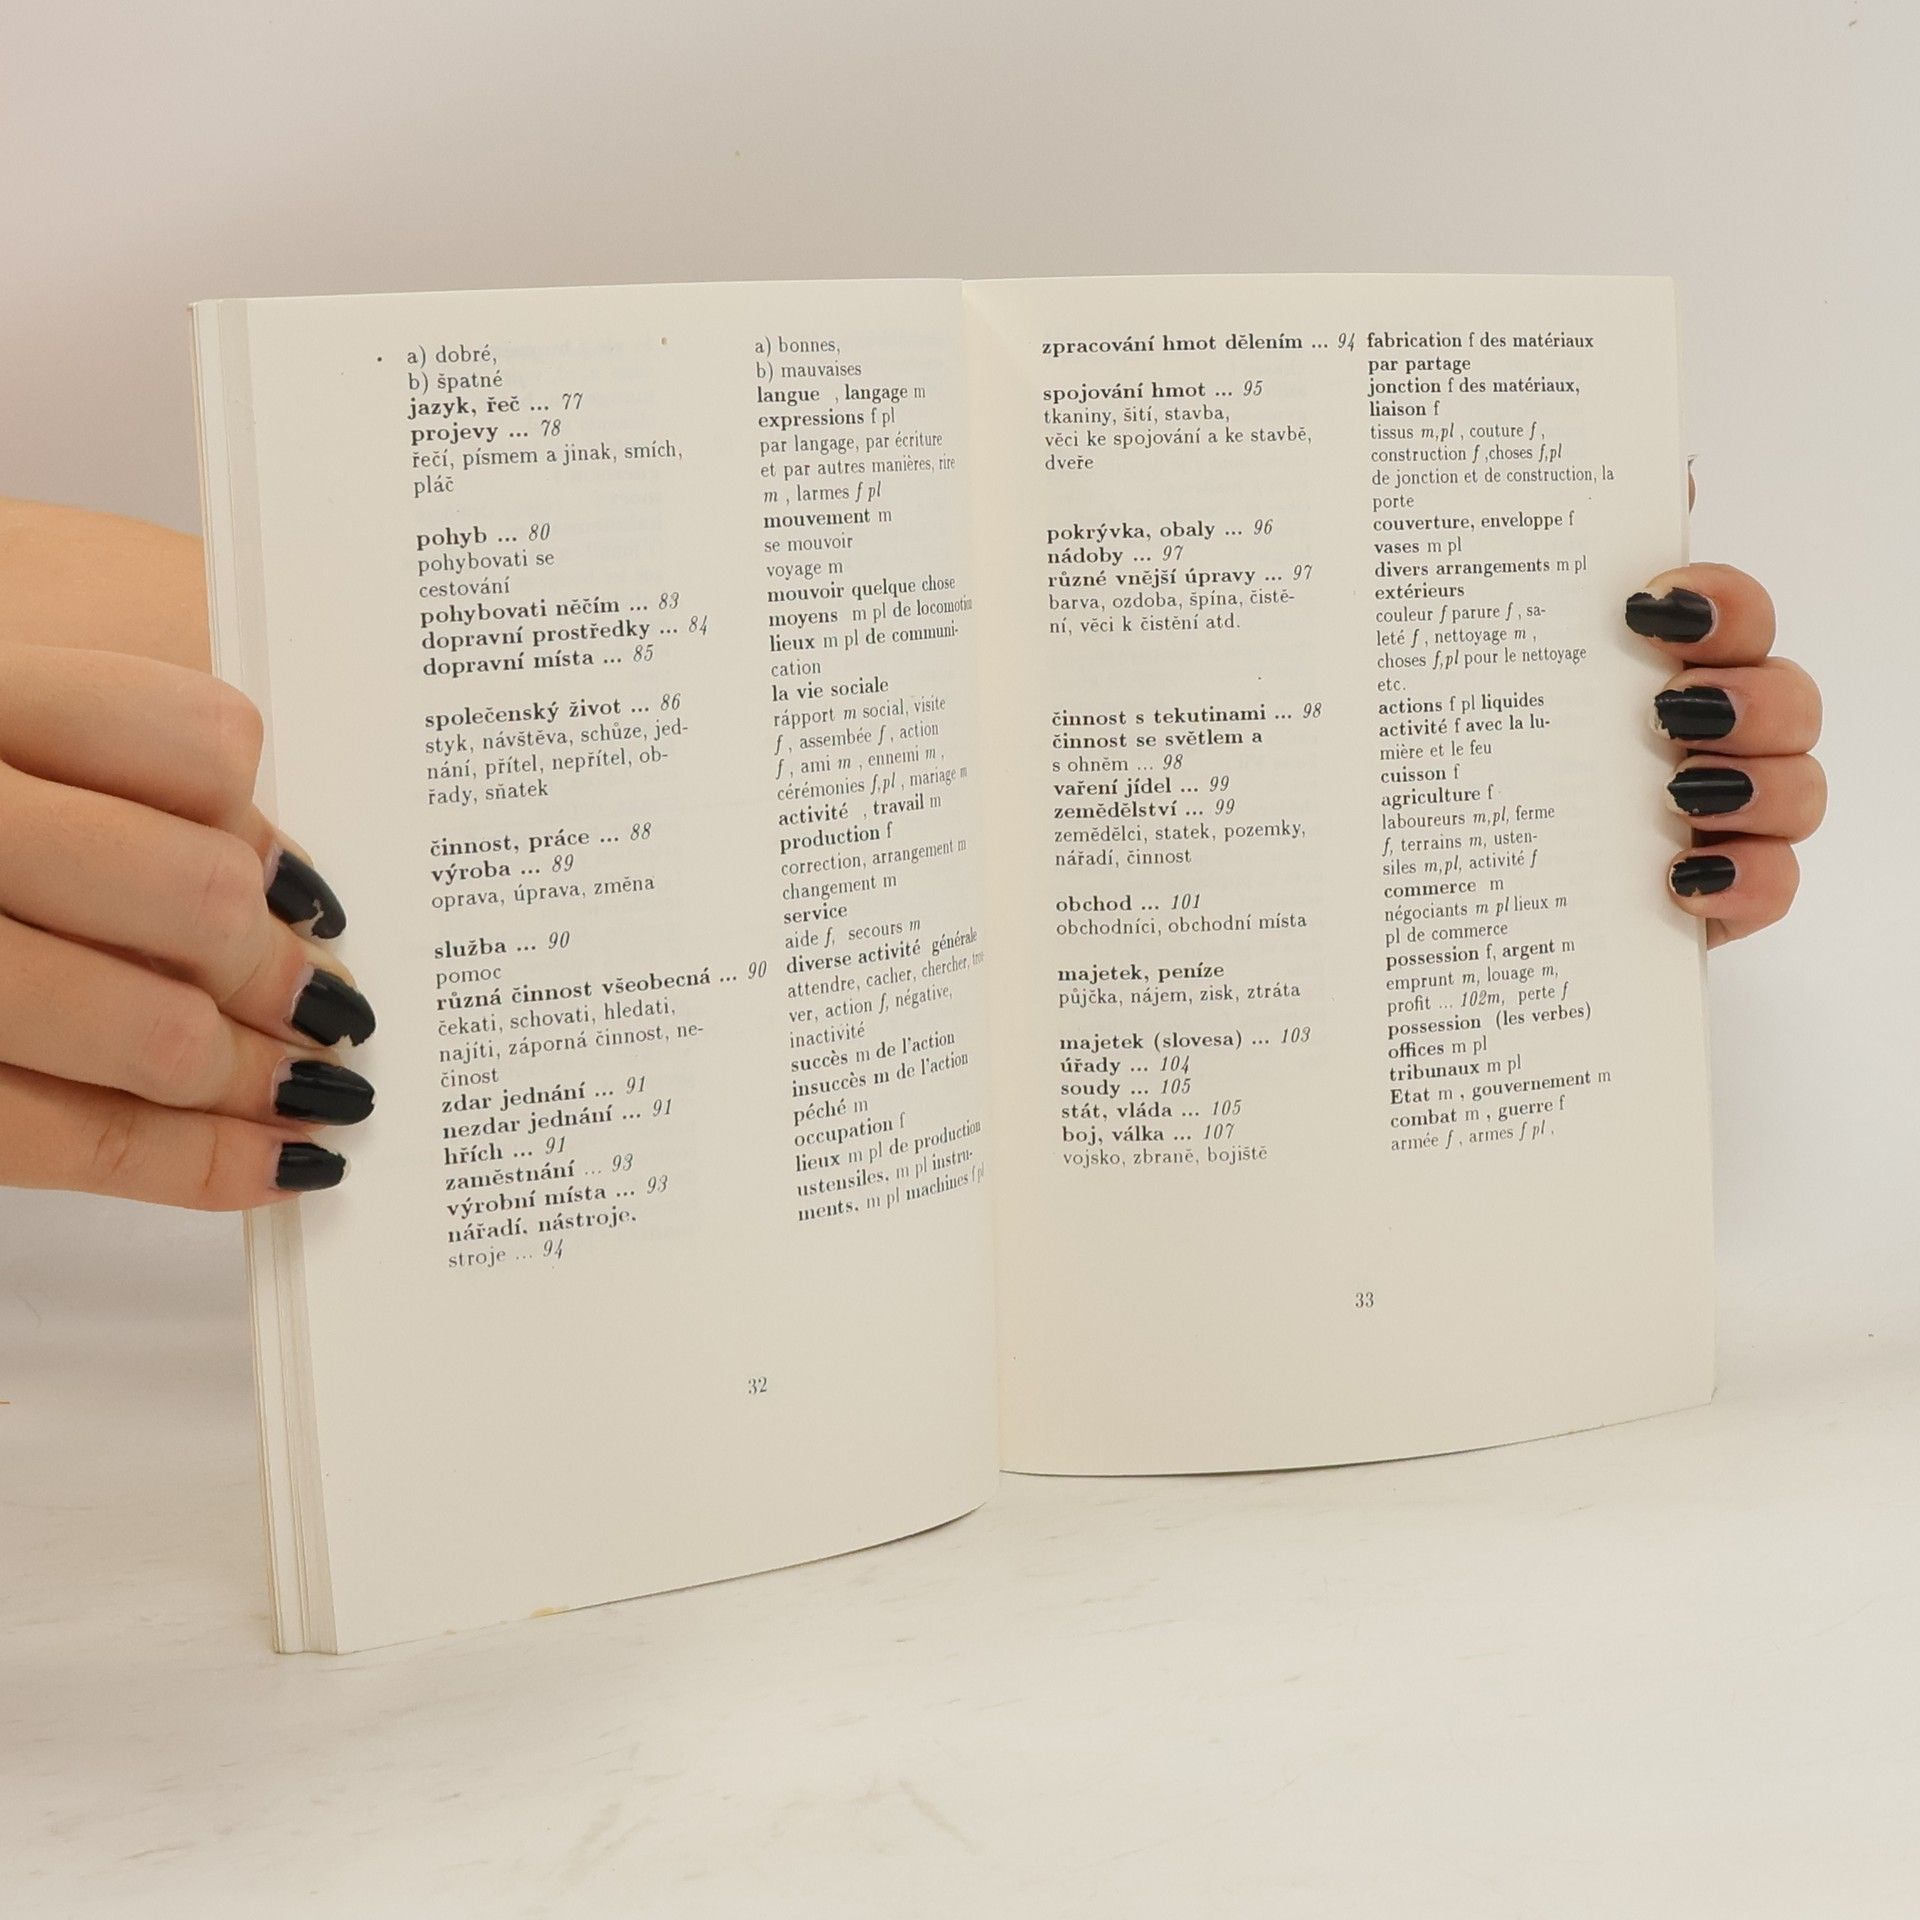 a) dobré,
b) špatné
jazyk, řeč ... 77
projevy ... 78
řečí, písmem a jinak, smích,
pláč
pohyb ... 80
pohybovati se
cestování
pohybovati něčím ... 83
dopravní prostředky ... 84
dopravní místa ... 85
společenský život ... 86
styk, návštěva, schůze, jed-
nání, přítel, nepřítel, ob-
řady, sňatek
činnost, práce ... 88
výroba ... 89
oprava, úprava, změna
služba ... 90
pomoc
různá činnost všeobecná ... 90
čekati, schovati, hledati,
najíti, záporná činnost, ne-
činost
zdar jednání ... 91
nezdar jednání ... 91
hřích ... 91
zaměstnání ... 93
výrobní místa ... 93
nářadí, nástroje,
stroje ... 94
a) bonnes,
b) mauvaises
langue , langage m
expressions f pl
par langage, par écriture
et par autres manières, rire
m , larmes f pl
mouvement m
se mouvoir
voyage m
mouvoir quelque chose
moyens m pl de locomotion
lieux m pl de communi-
cation
la vie sociale
rápport m social, visite
f , assembée f , action
f , ami m , ennemi m ,
cérémonies f,pl , mariage m
activité , travail m
production f
correction, arrangement m
changement m
service
aide f, secours m
diverse activité générale
attendre, cacher, chercher, trou-
ver, action f, négative,
inactivité
succès m de l'action
insuccès m de l'action
péché m
occupation f
lieux m pl de production
ustensiles, m pl instru-
ments, m pl machines f pl
32
zpracování hmot dělením ... 94
spojování hmot ... 95
tkaniny, šití, stavba,
věci ke spojování a ke stavbě,
dveře
pokrývka, obaly ... 96
nádoby ... 97
různé vnější úpravy ... 97
barva, ozdoba, špína, čistě-
ní, věci k čistění atd.
činnost s tekutinami ... 98
činnost se světlem a
s ohněm ... 98
vaření jídel ... 99
zemědělství ... 99
zemědělci, statek, pozemky,
nářadí, činnost
obchod ... 101
obchodníci, obchodní místa
majetek, peníze
půjčka, nájem, zisk, ztráta
majetek (slovesa) ... 103
úřady ... 104
soudy ... 105
stát, vláda ... 105
boj, válka ... 107
vojsko, zbraně, bojiště
fabrication f des matériaux
par partage
jonction f des matériaux,
liaison f
tissus m,pl , couture f ,
construction f ,choses f,pl
de jonction et de construction, la
porte
couverture, enveloppe f
vases m pl
divers arrangements m pl
extérieurs
couleur f parure f , sa-
leté f , nettoyage m ,
choses f,pl pour le nettoyage
etc.
actions f pl liquides
activité f avec la lu-
mière et le feu
cuisson f
agriculture f
laboureurs m,pl, ferme
f, terrains m, usten-
siles m,pl, activité f
commerce m
négociants m pl lieux m
pl de commerce
possession f, argent m
emprunt m, louage m,
profit ... 102m, perte f
possession (les verbes)
offices m pl
tribunaux m pl
Etat m , gouvernement m
combat m , guerre f
armée f , armes f pl ,
33